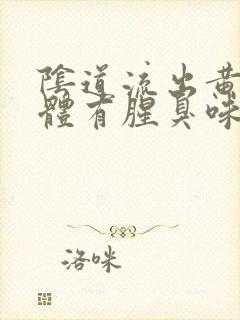 陰道流出黄
體有腥臭味
洛咪